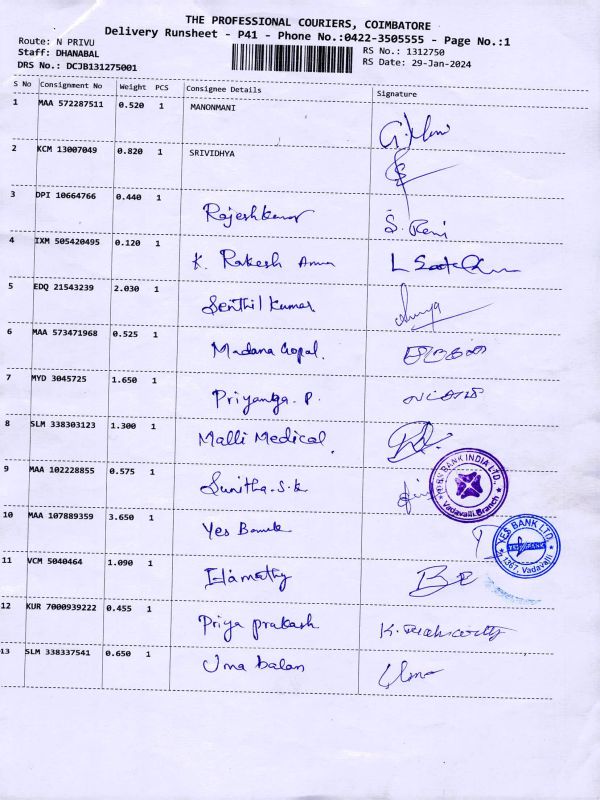 THE PROFESSIONAL COURIERS, COIMBATORE
Delivery Runsheet - P41 - Phone No.:0422-3505555 - Page No.:1
Route: N PRIVU
RS No.: 1312750
Staff: DHANABAL
RS Date: 29-Jan-2024
DRS No.: DCJB131275001
S No Consignment No Weight PCS Consignee Details Signature
1 MAA 572287511 0.520 1 MANONMANI
2 KCM 13007049 0.820 1 SRIVIDHYA
3 DPI 10664766 0.440 1 Rajeshkumar S. Rani
4 IXM 505420495 0.120 1 K. Rakesh
5 EDQ 21543239 2.030 1 Senthil kumar
6 MAA 573471968 0.525 1 Madana Gopal.
7 MYD 3045725 1.650 1 Priyanga. P.
8 SLM 338303123 1.300 1 Malli Medical
9 MAA 102228855 0.575 1 Sunitha. S. k
BANK INDIA LTD.
Vadavalli Branch
10 MAA 107889359 3.650 1 Yes Bank
YES BANK LTD.
1367, Vadavalli
11 VCM 5040464 1.090 1 Elamathy
12 KUR 7000939222 0.455 1 Priya prakash
13 SLM 338337541 0.650 1 Uma balan Uma